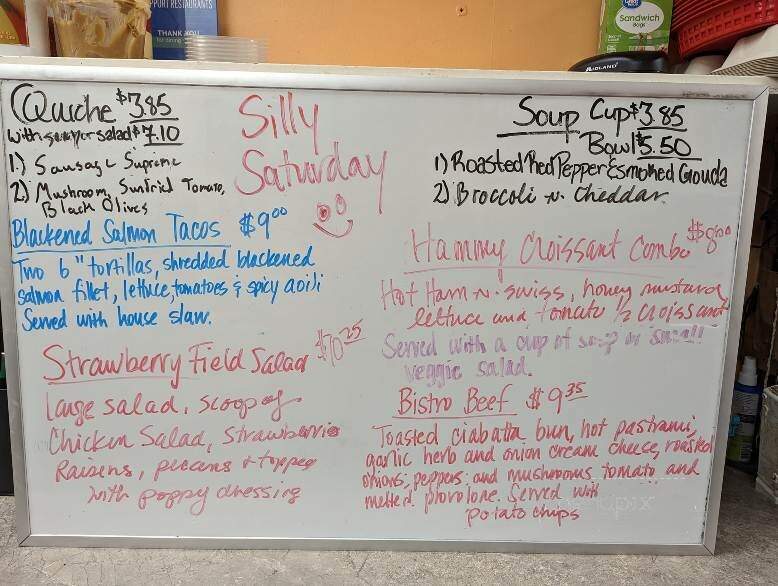 PORT RESTAURANTS
THANK YOU
Great Value
Sandwich
Bags
MIDLAND
Quiche $3.85
with soup or salad $7.10
1.) Sausage Supreme
2.) Mushroom, Sunfried Tomato,
Black Olives
Silly
Saturday
Soup Cup $3.85
Bowl $5.50
1) Roasted Red Pepper & smoked Gouda
2) Broccoli n. Cheddar
Blackened Salmon Tacos $9.00
Two 6" tortillas, shredded blackened
salmon fillet, lettuce, tomatoes & spicy aoili
Served with house slaw.
Hammy Croissant Combo $8.00
Hot Ham n. swiss, honey mustard,
lettuce and tomato 1/2 croissant
Served with a cup of soup or small
veggie salad.
Strawberry Field Salad $10.25
Large salad, scoop of
Chicken Salad, Strawberries
Raisens, pecans & topped
with poppy dressing
Bistro Beef $9.35
Toasted ciabatta bun, hot pastrami,
garlic herb and onion cream cheese, roasted
onions, peppers, and mushrooms, tomato, and
melted provolone. Served with
potato chips